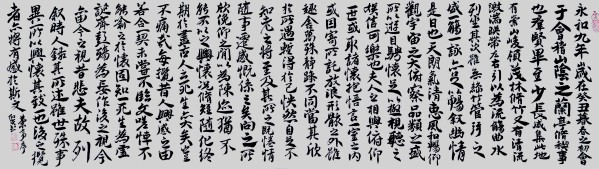 永和九年歲在癸丑暮春之初會
于會稽山陰之蘭亭脩稧事
也群賢畢至少長咸集此地
有崇山峻領茂林脩竹又有清流
激湍暎帶左右引以為流觴曲水
列坐其次雖無絲竹管弦之
盛一觴一詠亦足以暢敘幽情
是日也天朗氣清惠風和暢仰
觀宇宙之大俯察品類之盛
所以遊目騁懷足以極視聽之
娛信可樂也夫人之相與俯仰
一世或取諸懷抱悟言一室之內
或因寄所託放浪形骸之外雖
趣舍萬殊靜躁不同當其欣
於所遇蹔得於己快然自足不
知老之將至及其所之既惓情
隨事遷感慨係之矣向之所
欣俛仰之閒以為陳迹猶不
能不以之興懷況脩短隨化終
期於盡古人云死生亦大矣豈
不痛哉每攬昔人興感之由
若合一契未嘗不臨文嗟悼不
能喻之於懷固知一死生為虛
誕齊彭殤為妄作後之視今
亦由今之視昔悲夫故列
敘時人錄其所述雖世殊事
異所以興懷其致一也後之攬
者亦將有感於斯文